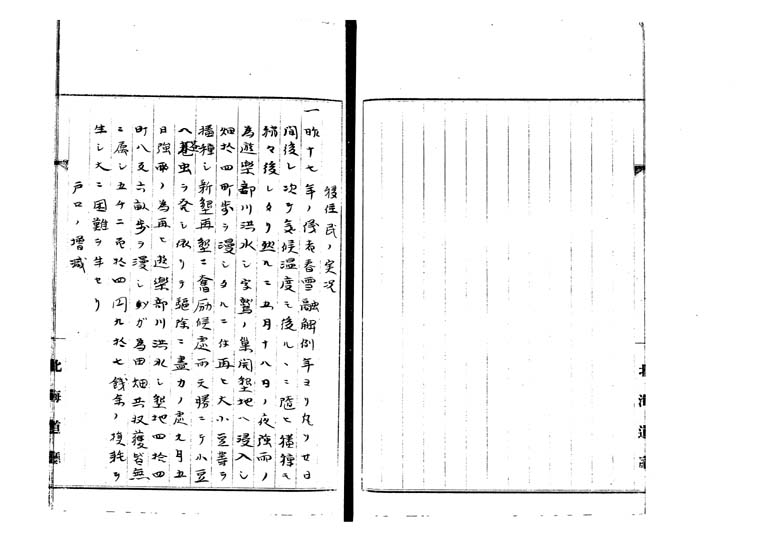 移住民ノ実況
一昨十七年ノ侵春雪融解例年ヨリ凡ソ廿日
間後レ次テ気候温度モ後ル、ニ随ヒ播種モ
稍々後レタリ然ルニ五月十八日ノ夜強雨ノ
為遊楽部川洪水シ字鷲ノ巣開墾地ヘ浸入シ
畑拾四町歩ヲ浸シタルニ付再ヒ大小豆等ヲ
播種シ新墾再墾ニ奮励候処而天勝ニテ小豆
ヘ虫ヲ発シ依リテ駆除ニ尽力ノ処九月五
日強雨ノ為再ヒ遊楽部川洪水シ墾地四拾四
町八反六畝歩ヲ浸シ夫カ為田畑共収獲皆無
ニ属シ五千二百拾四円九拾七銭余ノ損耗ヲ
生シ大ニ困難ヲ生セリ
戸口ノ増減
北海道庁